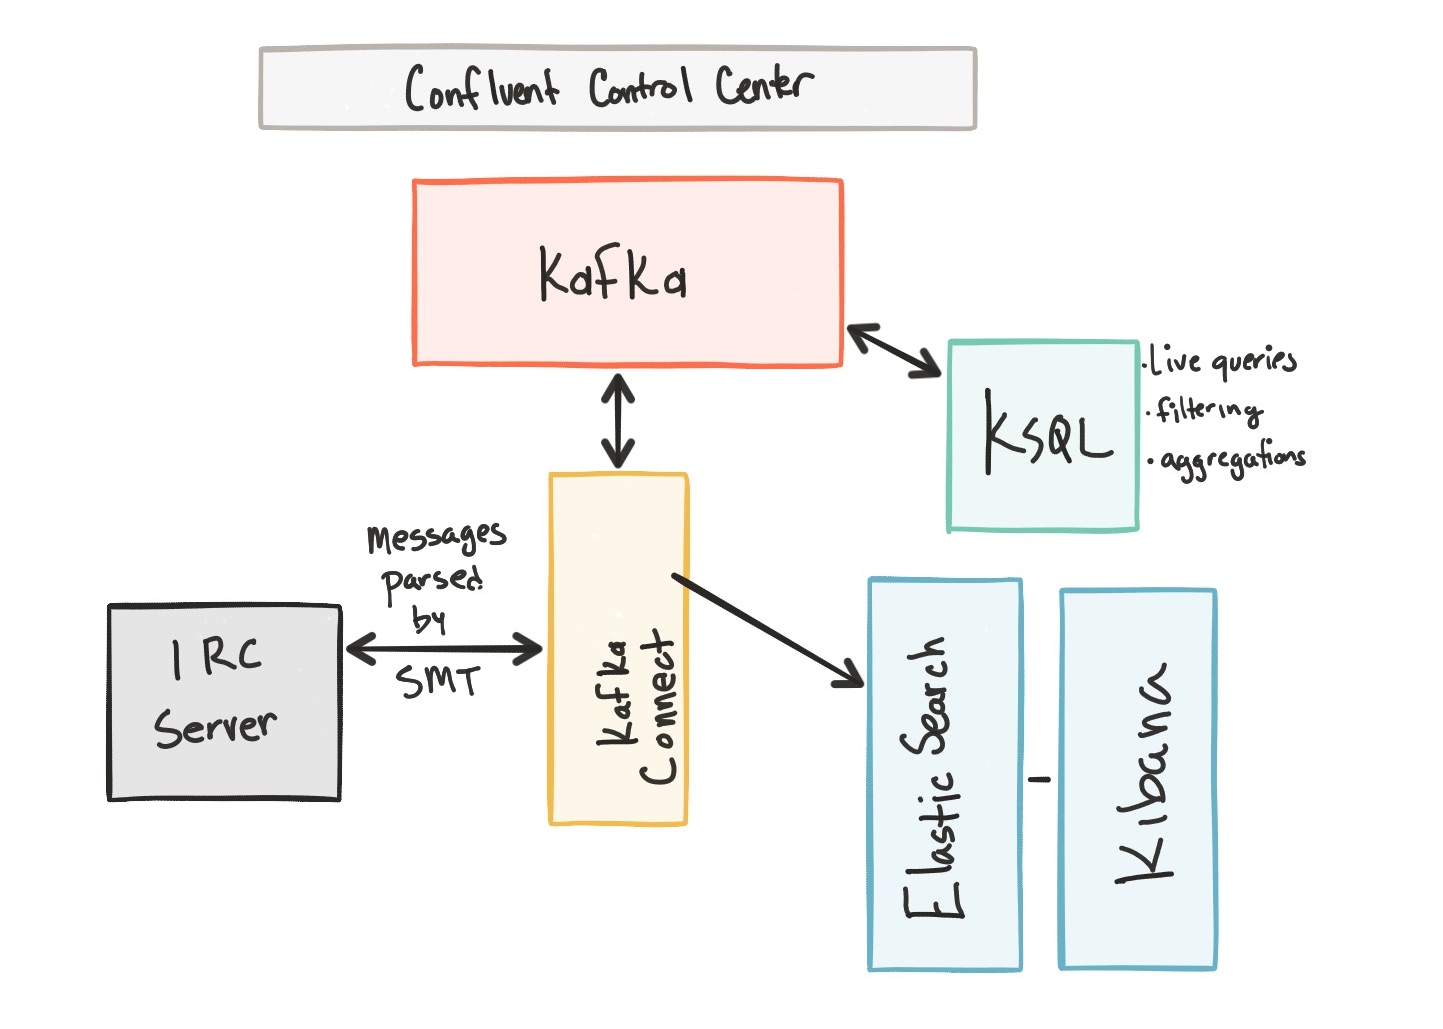 Confluent Control Center
Kafka
KSQL
·Live queries
·filtering
·aggregations
Messages
parsed
by
SMT
IRC
Server
Kafka
Connect
Elastic Search
-
Kibana